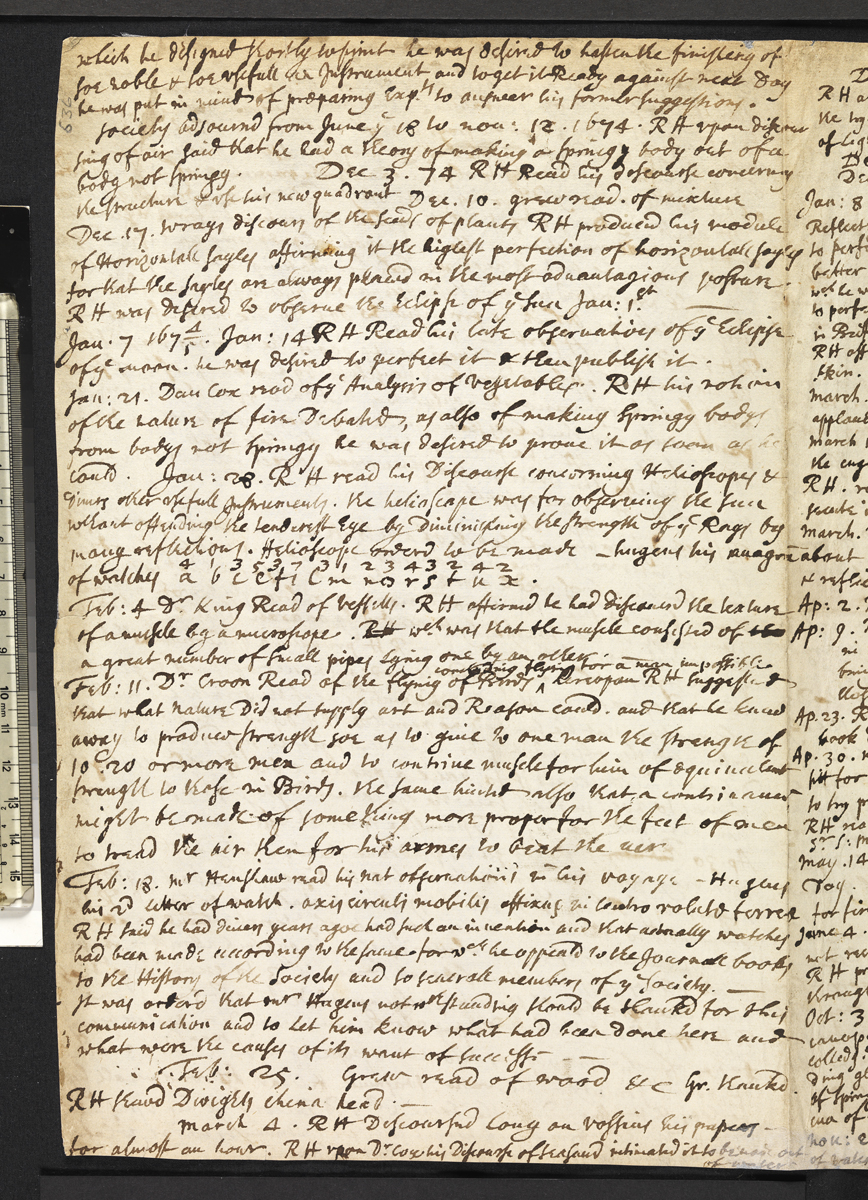 which he designed shortly to print he was desired to hasten the finishing of
soe noble & soe usefull an Instrument and to get it Ready against next Day
he was put in mind of præparing Exp.ts to answer his former suggestions.
Society adjournd from June ye 18 to nou: 12. 1674. RH upon discour
sing of air said that he had a theory of making a springy body out of a
body not springy. Dec 3. 74 RH Read his discourse concerning
the structure & use his new quadrant Dec. 10. grew read. of mixture
Dec. 17. wrays discours of the seeds of plants RH produced his module
of Horizontall sayles affirming it the highest perfection of horizontall sayles
for that the sayles are always placed in the most aduantagious posture.
RH was desired to obserue the Eclipse of ye sun Jan: 1st
Jan. 7 1674/5. Jan: 14 RH Read his late obseruations of ye Eclipse
of ye moon. he was desired to perfect it & then publish it.
Jan: 21. Dan Cox read of ye Analysis of Vegetables. RH his notion
of the nature of fire Debated, as also of making springy bodys
from bodys not springy he was desired to proue it as soon as he
could. Jan: 28. RH read his Discourse concerning Helioscopes &
some other usefull Instruments. the helioscope was for obserueing the sun
without offending the tenderest Eye by Diminishing the strength of ye Rays by
many reflections. Helioscope orderd to be made - hugens his anagram
of watches
4 1 3 5 3 7 3 1 2 3 4 3 2 4 2
a b c e f i l m n o r s t u x.
Feb: 4 Dr King Read of vessells. RH affirmd he had discouerd the texture
of a muscle by a microscope. RH wch was that the muscle consisted of
a great number of small pipes lying one by an other.
concluding flying for a man impossible
Feb: 11. Dr Croon Read of the flying of Birds, hereupon RH suggested
that what nature Did not supply art and Reason could. and that he knew
a way to produce strength soe as to giue to one man the strength of
10. 20 or more men and to contriue muscles for him of equiualent
strength to those in Birds. he same hinted also that a contriuance
might be made of something more proper for the feet of men
to tread the air then for his armes to beat the aer
Feb: 18. mr Henshaw read his nat obseruations in his voyage - Hugens
his 2d letter of watch. axis circuli mobilis affixus in centro volutæ ferreæ
RH said he had diuers years agoe had such an inuention and that actually watches
had been made according to the same. for wch he appeald to the Journall books
to the History of the Society and to seuerall members of ye Society.
It was orderd that mr Hugens notwthstanding should be thankd for this
communication and to let him know what had been done here and
what were the causes of its want of successe
Feb: 25. Grew read of wood &c Gr. thankd.
RH shewd Dwights china head.
march 4. RH Discoursd long on vossius his papers
for almost an hour. RH upon Dr Cox his Discourse of sea sand intimated it to be
RH a
Jan: 8
Reflect
to perfe
better
to perfe
RH off
skin.
march.
applau
march
the eng
RH. r
march.
about
& reflec
Ap: 2.
Ap: 9.
Ap. 23. R
book
Ap. 30.
fitt for
to try pr
RH rea
may. 14
for fir
June 4.
RH pr
through
Oct: 3
of spri
nou: 2